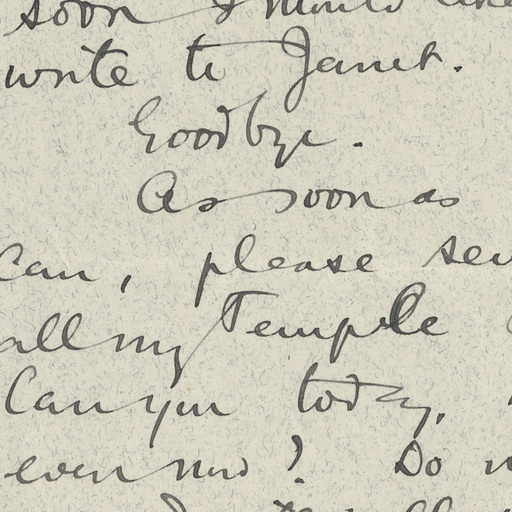 soon I would like
write to Janet.
Goodbye.
As soon as
can, please sen
all my Temple
Can you today,
even now? Do